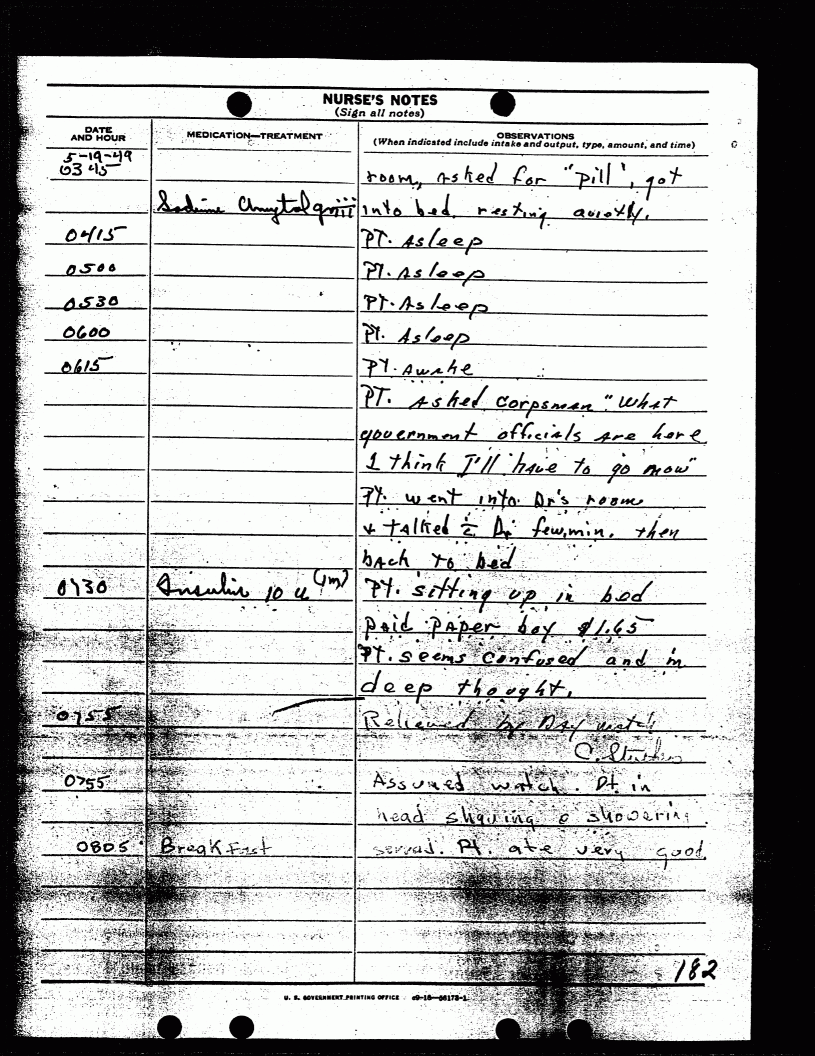 NURSE'S NOTES
(Sign all notes)
DATE AND HOUR
MEDICATION—TREATMENT
OBSERVATIONS
(When indicated include intake and output, type, amount, and time)
5-19-49
0345 room, asked for "pill", got
Sodium Amytal gr iii into bed, resting quietly.
0415 PT. Asleep
0500 PT. Asleep
0530 PT. Asleep
0600 PT. Asleep
0615 PT. Awake
PT. Asked Corpsman "What
government officials are here
I think I'll have to go now"
PT. went into Dr's room
& talked c̄ Dr few min. then
back to bed
0730 Insulin 10 u (im) PT. sitting up in bed
paid paper boy $1.65
PT. seems confused and in
deep thought.
0755 Relieved by Day watch
C.
0755 Assumed watch. Pt. in
head shaving & showering.
0805 Breakfast served. Pt. ate very good.
182
U. S. GOVERNMENT PRINTING OFFICE